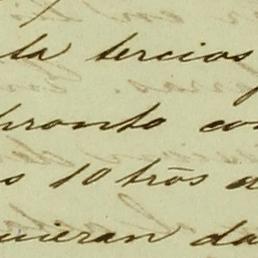 ta tercios
pronto co
s 10 trōs d
uieran da